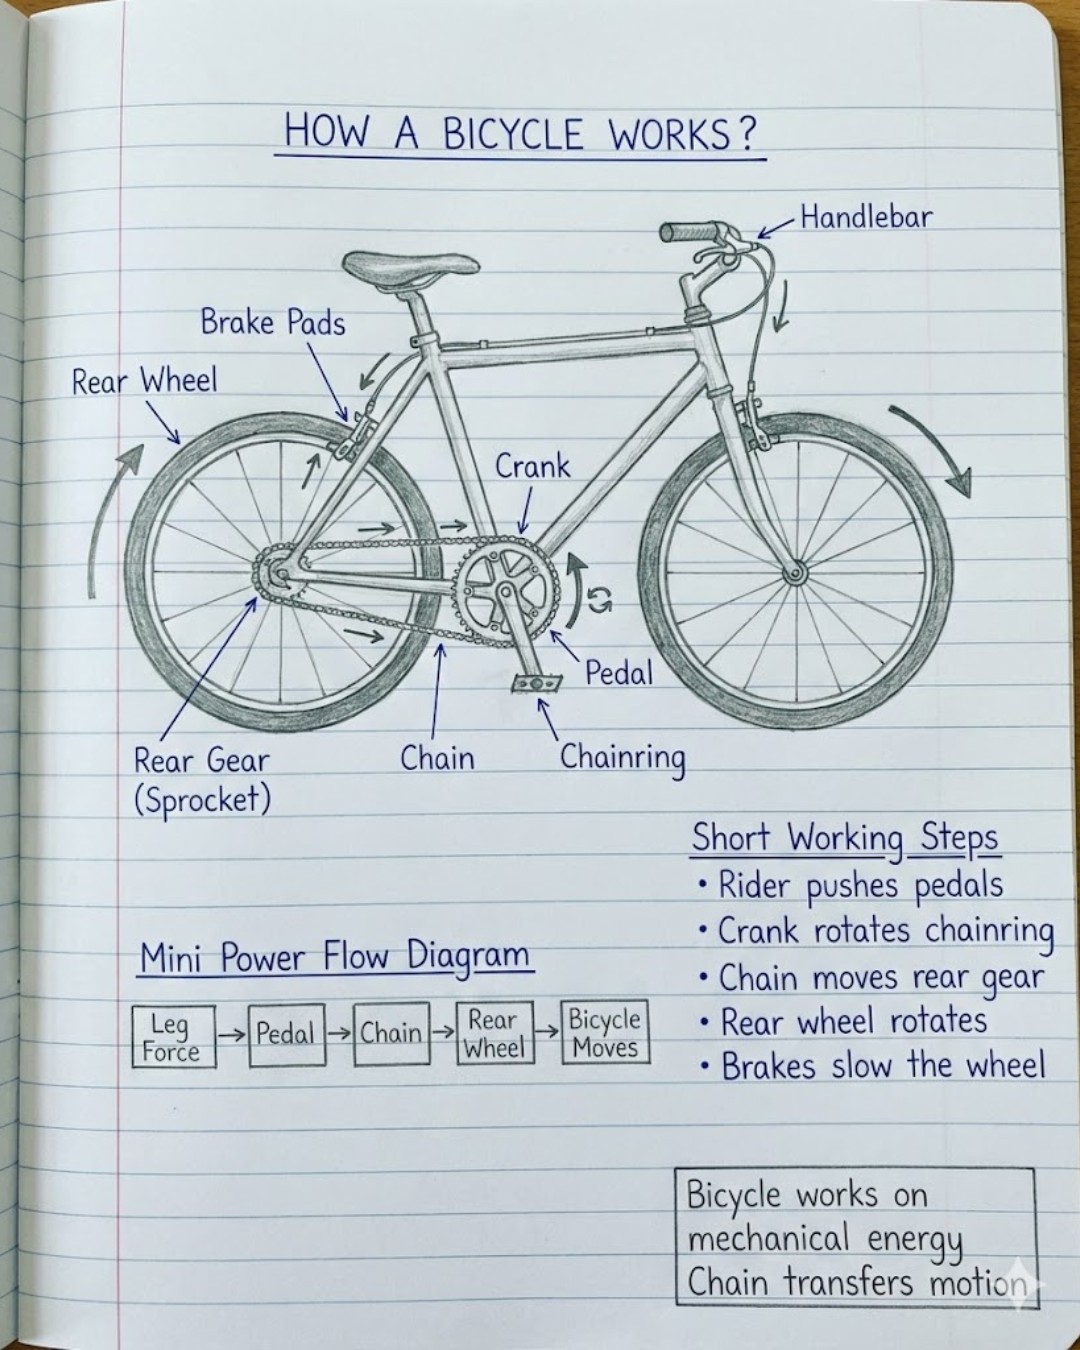 HOW A BICYCLE WORKS?
Handlebar
Brake Pads
Rear Wheel
Crank
Pedal
Rear Gear
(Sprocket)
Chain
Chainring
Short Working Steps
• Rider pushes pedals
• Crank rotates chainring
• Chain moves rear gear
• Rear wheel rotates
• Brakes slow the wheel
Mini Power Flow Diagram
Leg
Force
Pedal
Chain
Rear
Wheel
Bicycle
Moves
Bicycle works on
mechanical energy
Chain transfers motion